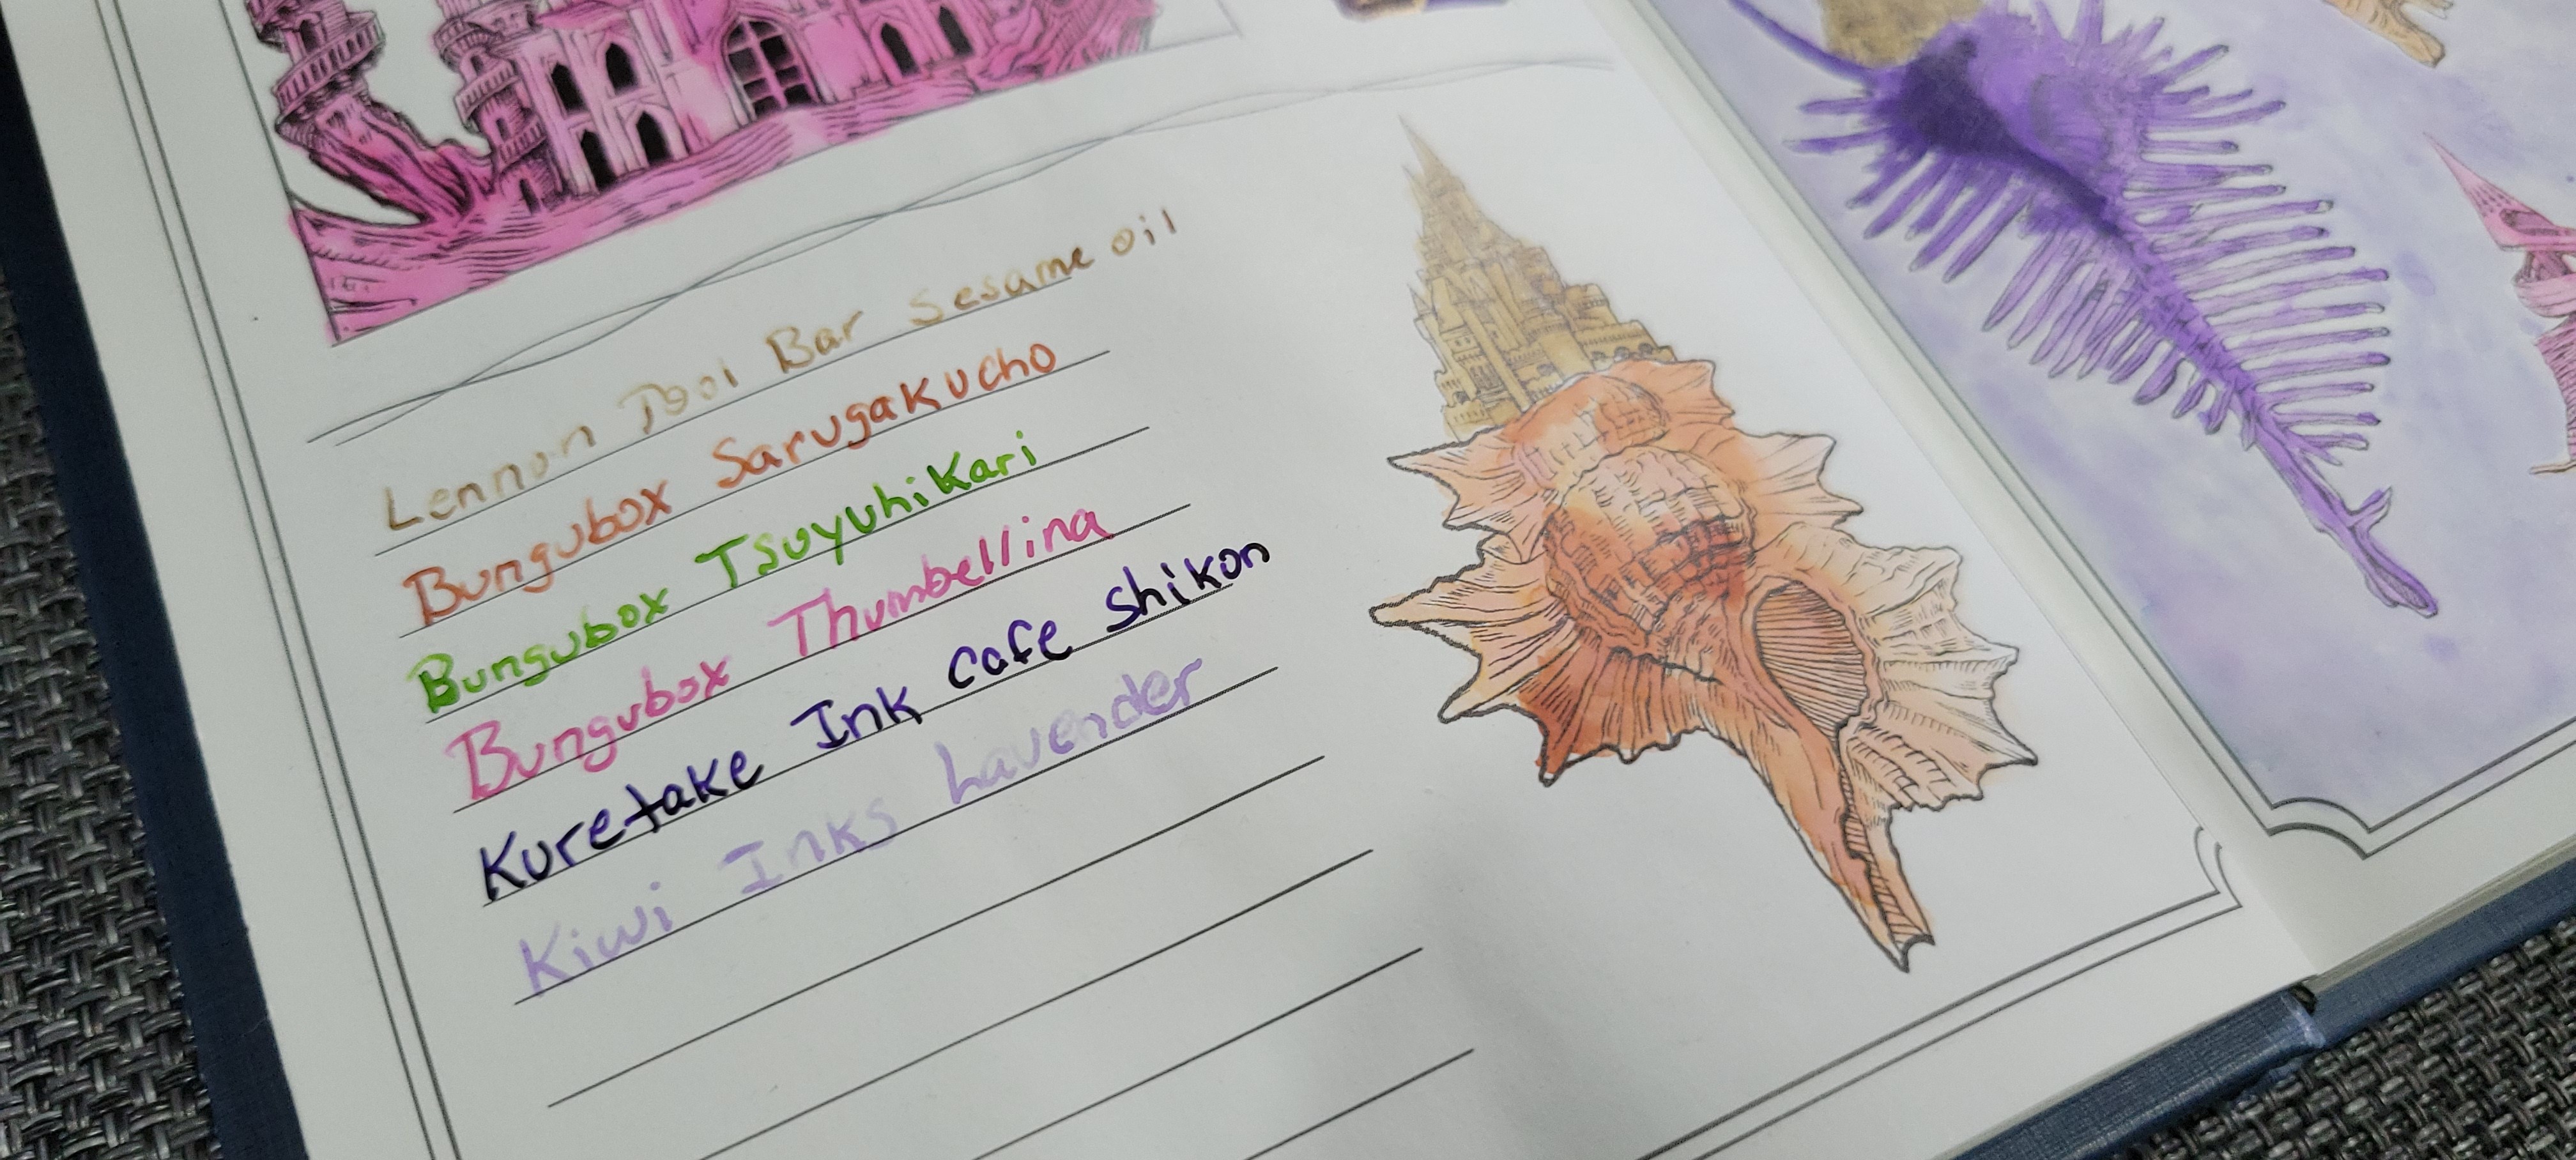 Lennon Tool Bar Sesame oil
Bungubox Sarugakucho
Bungubox Tsuyuhikari
Bungubox Thumbellina
Kuretake Ink cafe Shikon
Kiwi Inks Lavender